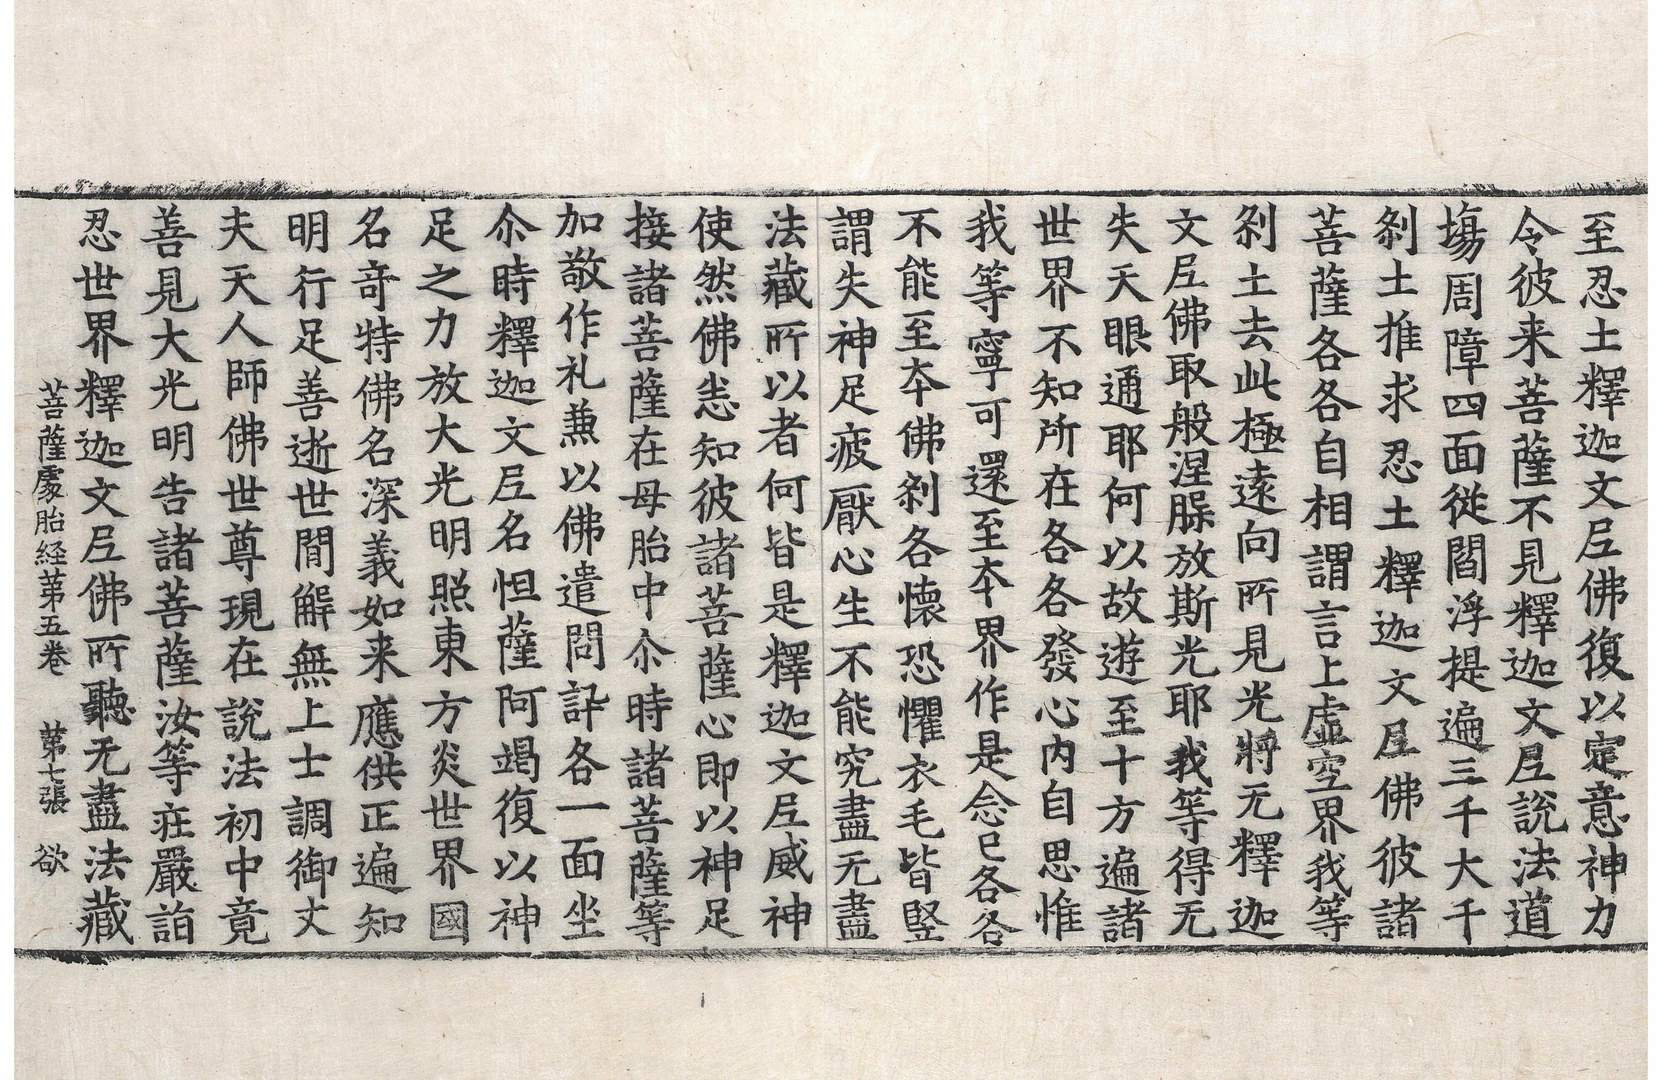 至忍土釋迦文尼佛復以定意神力
令彼来菩薩不見釋迦文尼說法道
場周障四面從閻浮提遍三千大千
剎土推求忍土釋迦文尼佛彼諸
菩薩各各自相謂言上虛空界我等
剎土去此極遠向所見光將无釋迦
文尼佛取般涅槃放斯光耶我等得无
失天眼通耶何以故遊至十方遍諸
世界不知所在各各發心內自思惟
我等寧可還至本界作是念已各各
不能至本佛剎各懷恐懼衣毛皆竪
謂失神足疲厭心生不能究盡无盡
法藏所以者何皆是釋迦文尼威神
使然佛悉知彼諸菩薩心即以神足
接諸菩薩在母胎中尒時諸菩薩等
加敬作礼兼以佛遣問訊各一面坐
尒時釋迦文尼名怛薩阿竭復以神
足之力放大光明照東方炎世界國
名奇特佛名深義如来應供正遍知
明行足善逝世間解無上士調御丈
夫天人師佛世尊現在說法初中竟
善見大光明告諸菩薩汝等莊嚴詣
忍世界釋迦文尼佛所聽无盡法藏
菩薩處胎経苐五卷 苐七張 欲